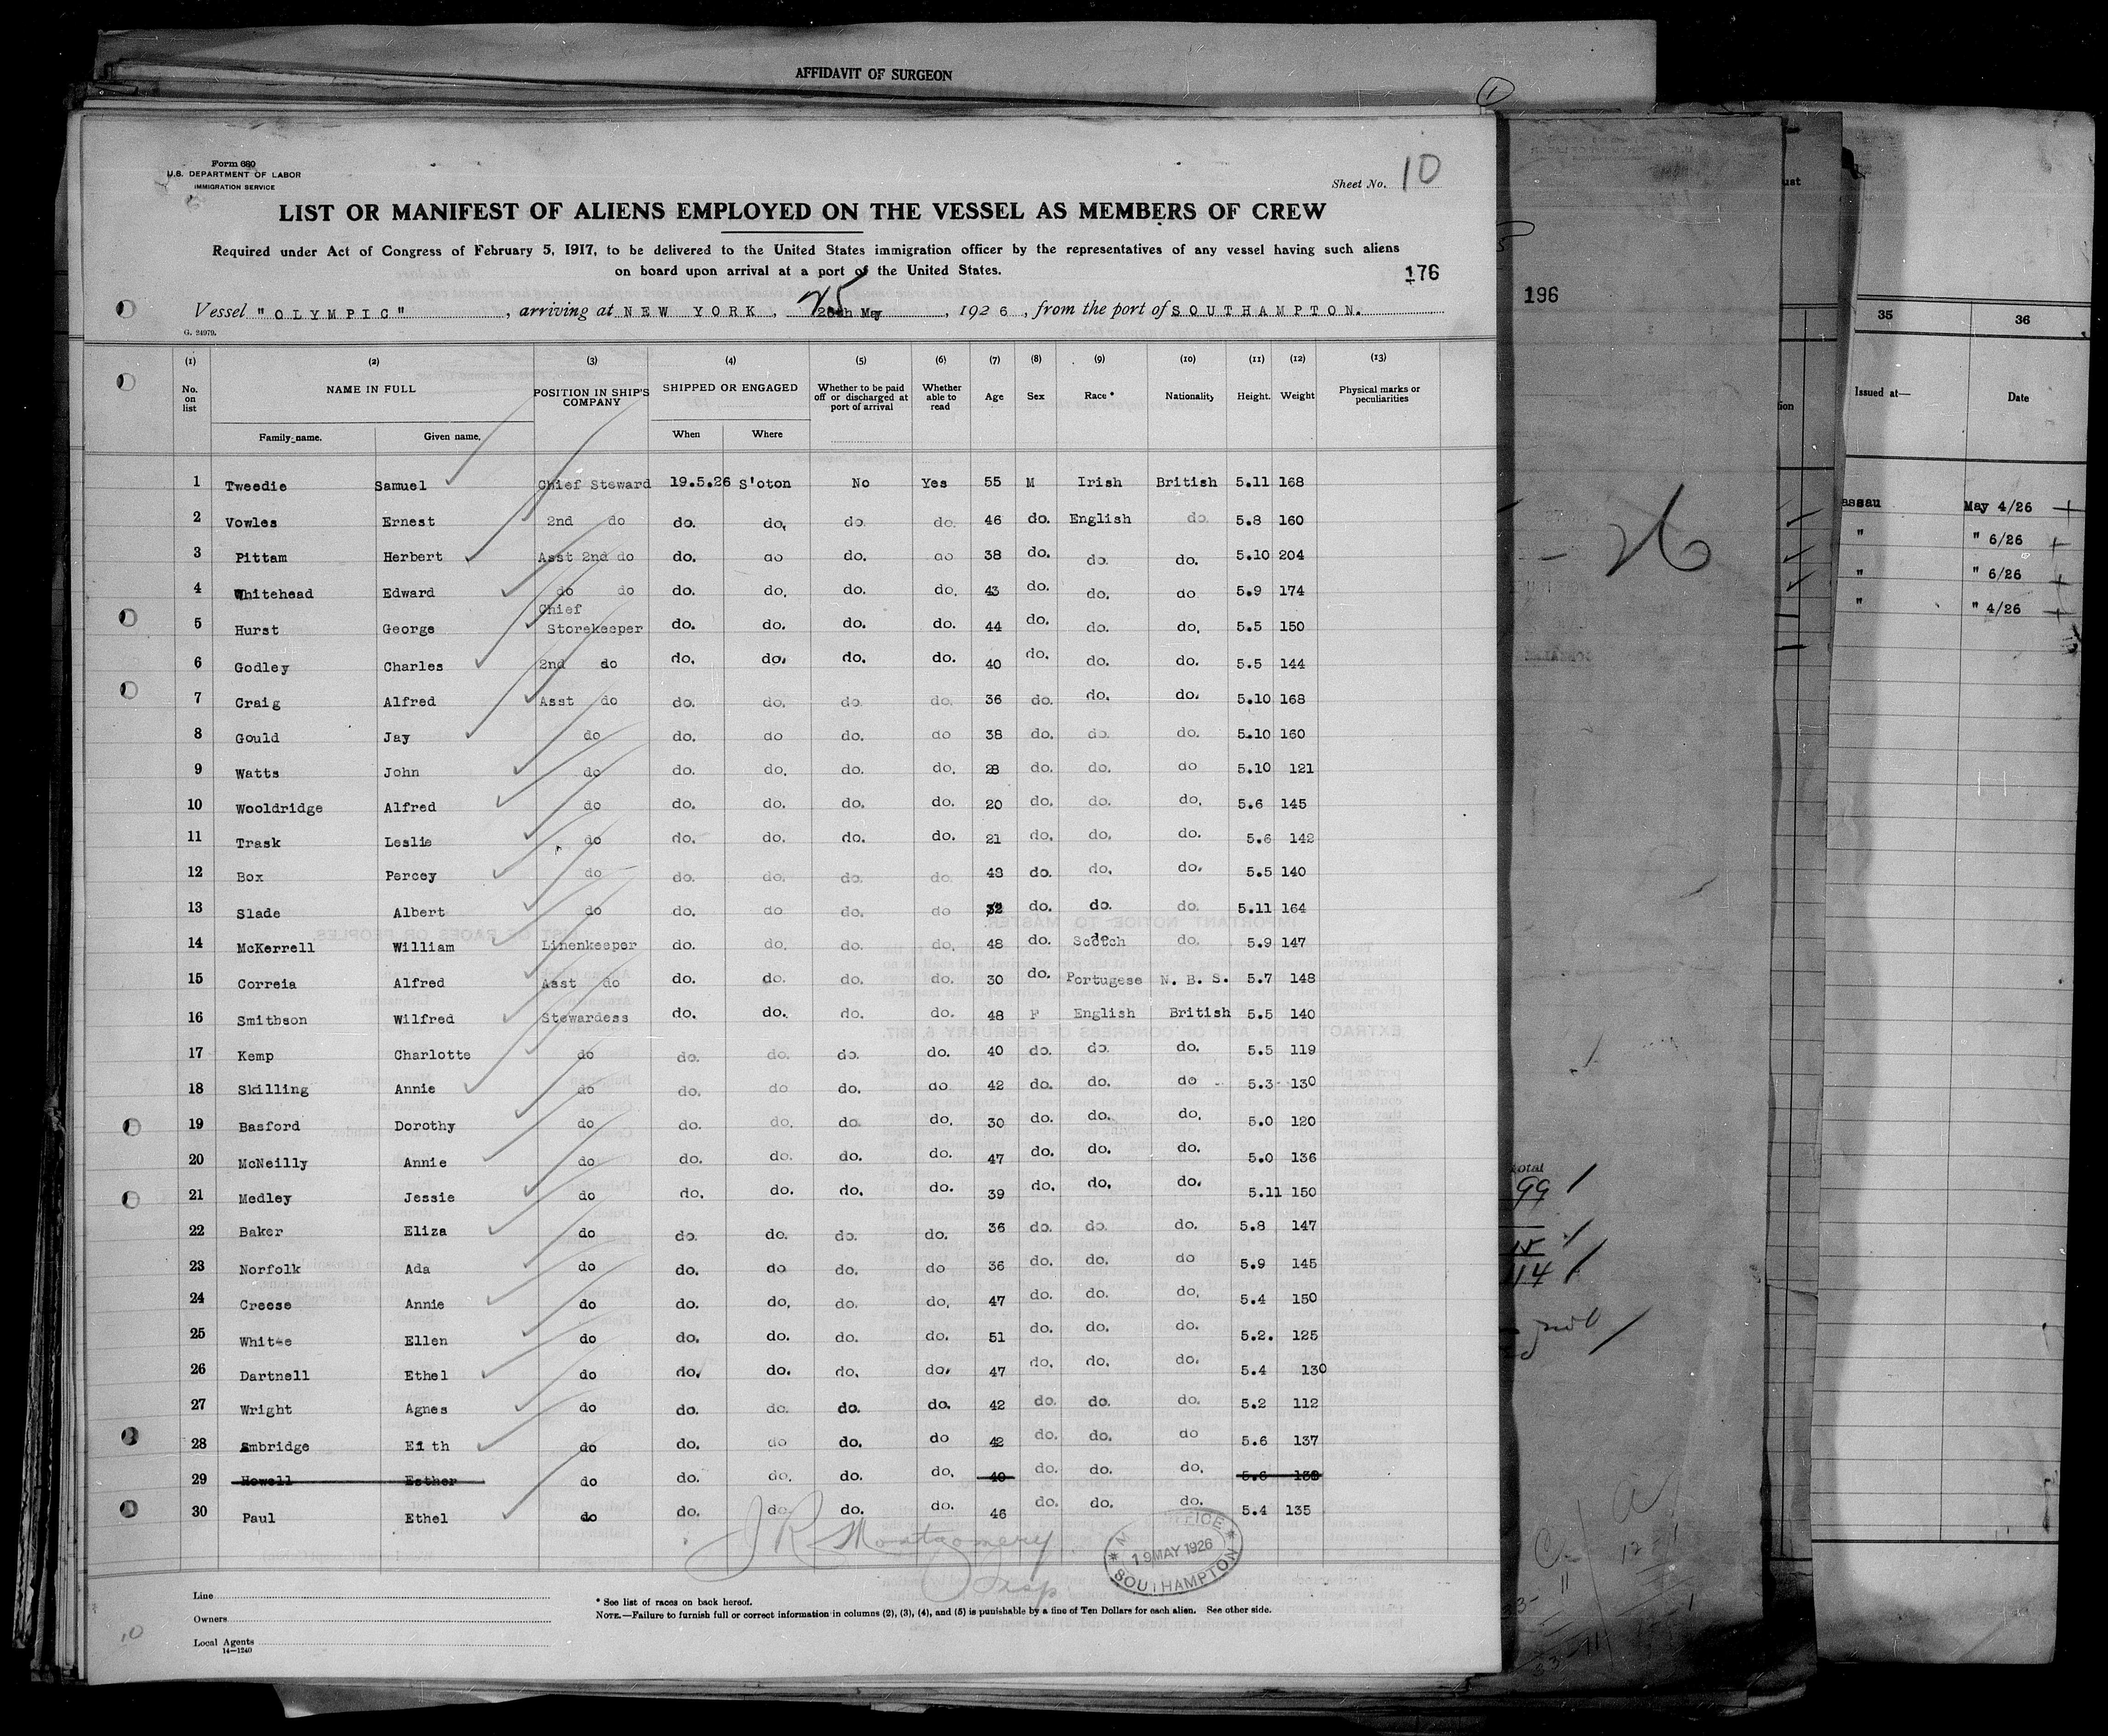 AFFIDAVIT OF SURGEON
1
Form 680
U.S. DEPARTMENT OF LABOR
IMMIGRATION SERVICE
Sheet No. 10
LIST OR MANIFEST OF ALIENS EMPLOYED ON THE VESSEL AS MEMBERS OF CREW
Required under Act of Congress of February 5, 1917, to be delivered to the United States immigration officer by the representatives of any vessel having such aliens
on board upon arrival at a port of the United States.
176
Vessel "OLYMPIC", arriving at NEW YORK, 25 May, 1926, from the port of SOUTHAMPTON.
G. 24979.
(1) (2) (3) (4) (5) (6) (7) (8) (9) (10) (11) (12) (13)
No. on list NAME IN FULL POSITION IN SHIP'S COMPANY SHIPPED OR ENGAGED Whether to be paid off or discharged at port of arrival Whether able to read Age Sex Race* Nationality Height. Weight Physical marks or peculiarities
Family name. Given name. When Where
1 Tweedie Samuel Chief Steward 19.5.26 S'oton No Yes 55 M Irish British 5.11 168
2 Vowles Ernest 2nd do do. do. do. do. 46 do. English do. 5.8 160
3 Pittam Herbert Asst 2nd do do. do do. do 38 do. do. do. 5.10 204
4 Whitehead Edward do do do. do. do. do. 43 do. do. do 5.9 174
5 Hurst George Chief Storekeeper do. do. do. do. 44 do. do. do. 5.5 150
6 Godley Charles 2nd do do. do. do. do. 40 do. do. do. 5.5 144
7 Craig Alfred Asst do do. do. do. do. 36 do. do. do. 5.10 168
8 Gould Jay do do. do do. do 38 do. do. do. 5.10 160
9 Watts John do do. do. do. do. 28 do. do. do 5.10 121
10 Wooldridge Alfred do do. do. do. do. 20 do. do. do. 5.6 145
11 Trask Leslie do do. do. do. do. 21 do. do. do. 5.6 142
12 Box Percey do do. do. do. do. 48 do. do. do. 5.5 140
13 Slade Albert do do. do do. do 32 do. do. do. 5.11 164
14 McKerrell William Linenkeeper do. do. do. do. 48 do. Scotch do. 5.9 147
15 Correia Alfred Asst do do. do. do. do. 30 do. Portugese N. B. S. 5.7 148
16 Smithson Wilfred Stewardess do. do. do. do. 48 F English British 5.5 140
17 Kemp Charlotte do do. do. do. do. 40 do. do. do. 5.5 119
18 Skilling Annie do do. do do. do 42 do. do. do 5.3 130
19 Basford Dorothy do do. do. do do. 30 do. do. do. 5.0 120
20 McNeilly Annie do do. do. do. do. 47 do. do. do. 5.0 136
21 Medley Jessie do do. do. do. do. 39 do. do. do. 5.11 150
22 Baker Eliza do do. do. do. do. 36 do. do. do. 5.8 147
23 Norfolk Ada do do. do do. do 36 do. do. do 5.9 145
24 Creese Annie do do. do. do. do. 47 do. do. do. 5.4 150
25 White Ellen do do. do. do. do. 51 do. do. do. 5.2. 125
26 Dartnell Ethel do do. do. do. do. 47 do. do. do. 5.4 130
27 Wright Agnes do do. do. do. do. 42 do. do. do. 5.2 112
28 Ambridge do do. do do. do 42 do. do. do 5.6 137
29 Howell Esther do do. do. do. do. 40 do. do. do. 5.6
30 Paul Ethel do do. do. do. do. 46 do. do. do. 5.4 135
J R Montgomery
OFFICE
19 MAY 1926
SOUTHAMPTON
Line
Owners
Local Agents
14—1240
* See list of races on back hereof.
NOTE.—Failure to furnish full or correct information in columns (2), (3), (4), and (5) is punishable by a fine of Ten Dollars for each alien. See other side.
10
196
26
total
99
15
114
35 36
Issued at— Date
assau May 4/26
" " 6/26
" " 6/26
" " 4/26